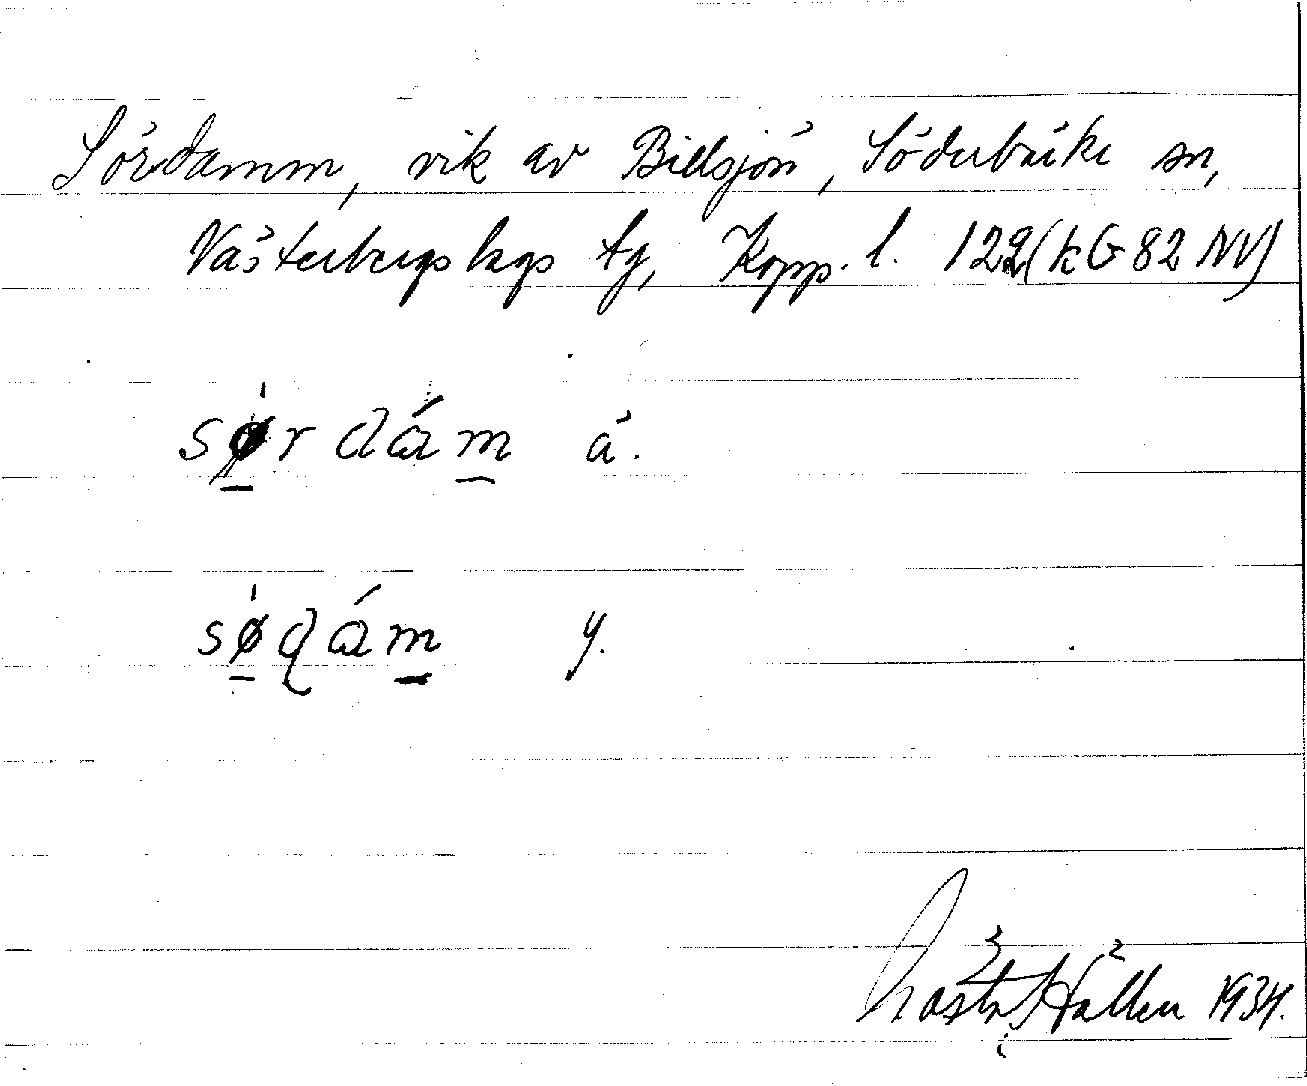 Sördamm, vik av Billsjön, Söderbärke sn,
Västerbergslags tg, Kopp. l. 122 (kG 82 NV)
sø̀rdám ä.
sø̀ɖám y.
Gösta Hållen 1934.